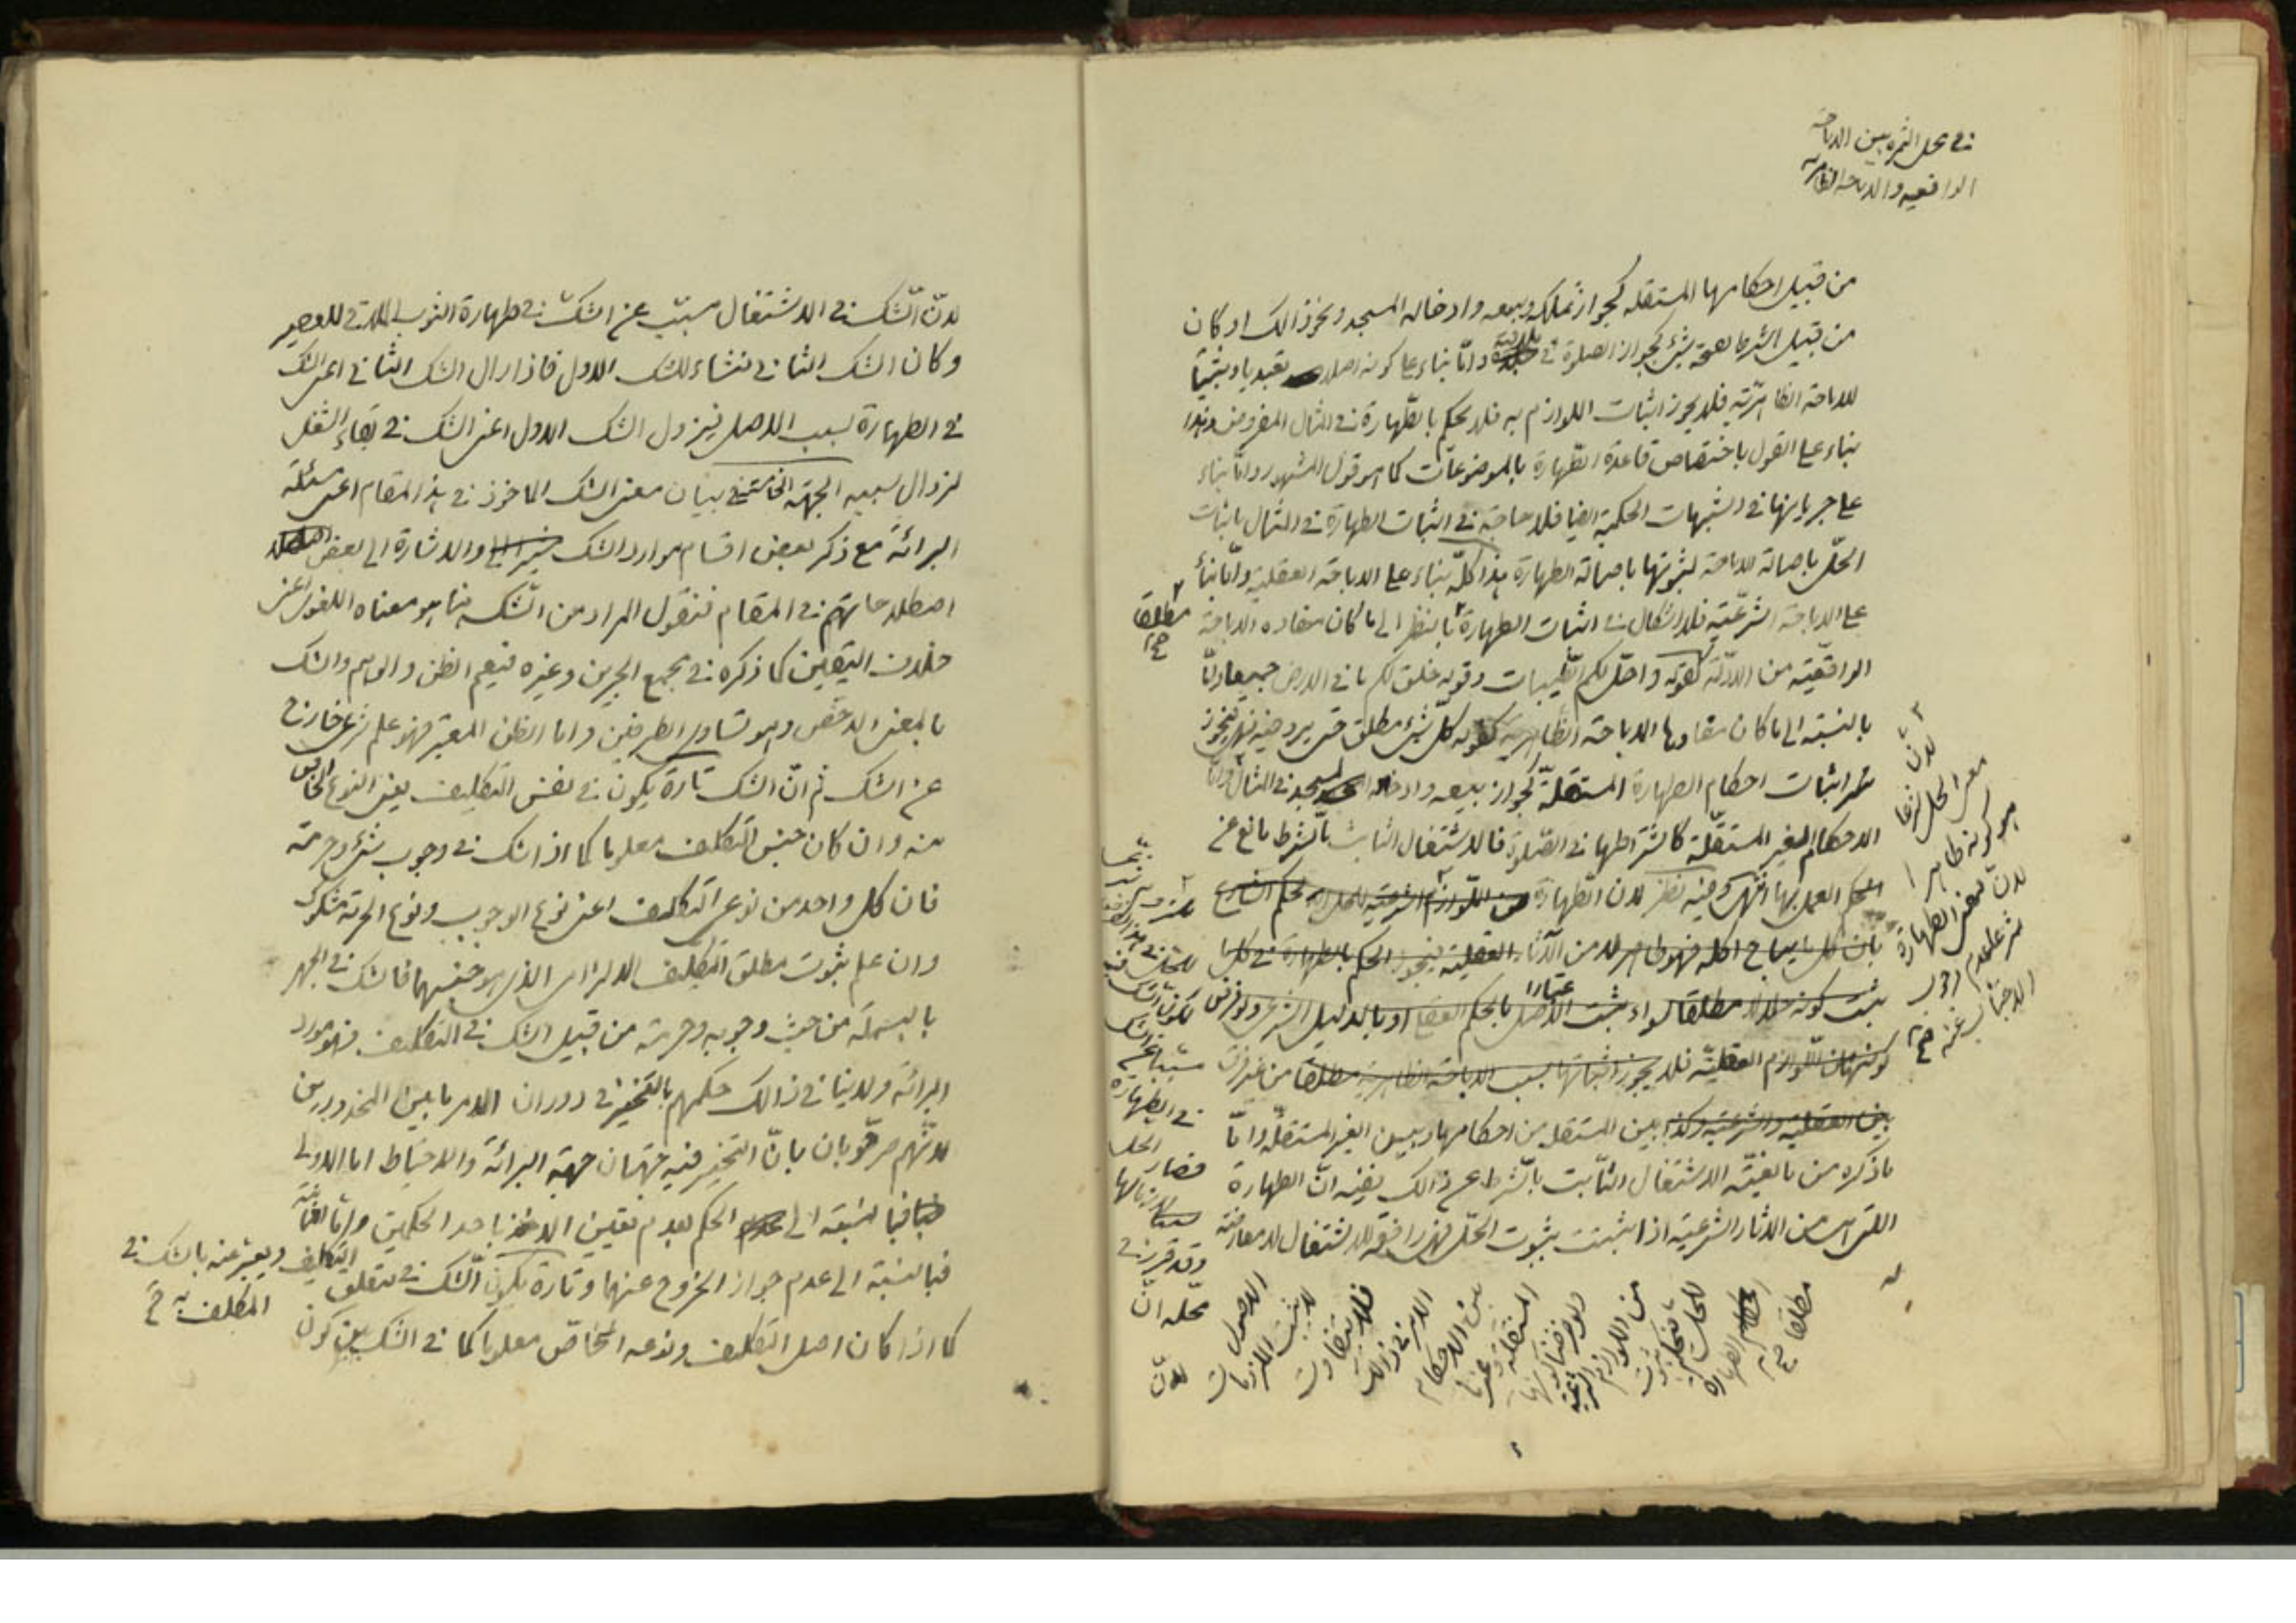 في محل الثمرة بين الاباحة
الواقعيه والاباحة الظاهريه
من قبيل احكامها المستقله كجواز تملكه وبيعه وادخاله المسجد ونحو ذالك او كان
من قبيل الشرط لصحة شئ كجواز الصلوة في وامّا بناء على كونه اصلا تعبديا ومثبتا
للاباحة الظاهريّة فلا يجوز اثبات اللوازم به فلا يحكم بالطّهارة في المثال المفروض وهذا
بناء على القول باختصاص قاعدة الطّهارة بالموضوعات كما هو قول المشهور وامّا بناء
على جريانها في الشبهات الحكمية ايضا فلا حاجة في اثبات الطهارة في المثال باثبات
الحلّ باصالة الاباحة لثبوتها باصالة الطهارة هذا كلّه بناء على الاباحة العقلية وامّا بناء
على الاباحة الشرعّيه فلا اشكال في اثبات الطهارة بالنظر الى ما كان مفاده الاباحة
مطلقا صح
الواقعّيه من الادلّة كقوله واحلّ لكم الطّيبات وقوله خلق لكم ما في الارض جميعا وامّا
بالنسبة الى ما كان مفادها الاباحة الظاهريه كقوله كلّ شئ مطلق حتى يرد فيه نهى فيجوز
اثبات احكام الطهارة المستقلّة كجواز بيعه وادخاله المسجد في المثال وامّا
الاحكام الغير المستقلّة كاشتراطها في الصّلوة فالاشتغال الثابت بالشرط مانع عن
الحكم العمل بها انتهى وفيه نظر لان الطّهارة من اللّوازم الشرعيّة للحل لحكم الشارع
بان كل ما يباح اكله فهو طاهر لا من الآثار العقلية فيجوز الحكم بالطهارة في كل ما
ثبت كونه حلالا مطلقا سواء ثبت الاصل بالحكم العقل او بالدليل الشرعى ولو فرض
اعتبارا
كونها من اللّوازم العقليّة فلا يجوز اثباتها بسبب الاباحة الظاهرية مطلقا من غير فرق
بين العقليه والشرعيّه وكذا بين المستقل من احكامها وبين الغير المستقلّه وامّا
ما ذكره من مانعيّة الاشتغال الثّابت بالشّرط عن ذالك ففيه انّ الطهارة
اللتى هى من الاثار الشرعيّه اذا ثبتت بثبوت الحلّ فهى رافعة للاشتغال لا معارضة
له
لانّ
معنى الحل
هو كونه طاهرا
لانّ معنى الطهارة
شرعا عدم وجوب
الاجتناب عنه صح
في الطهارة
الحل
فصار
وقد قرّر في
محلّه انّ
الاصول
لا يثبت اللازمات
فلا يتفاوت
الامر في ذالك
بين الاحكام
المستقلة وغيرها
ولو فرضنا كونها
من اللوازم الشرعيّه
للحل
الطهارة
مطلقا صح
لانّ
لانّ الشّك في الاشتغال مسبّب عن الشكّ في طهارة الثوب الملاقى للعصير
وكان الشك الثاني منشاء للشك الاول فاذا زال الشك الثاني اعنى الشك
في الطهارة بسبب الاصل فيزول الشك الاول اعنى الشك في بقاء الشغل
لزوال سببه الجهة الخامسة في بيان معنى الشك الماخوذ في هذا المقام اعنى مسئلة
البرائة مع ذكر بعض اقسام موارد الشك والاشارة الى بعض
اصطلاحاتهم في المقام فنقول المراد من الشّك هنا هو معناه اللغوى اعنى
خلاف اليقين كما ذكره في مجمع البحرين وغيره فيعم الظن والوهم والشك
بالمعنى الاخصّ وهو تساوى الطرفين واما الظن المعتبر فهو علم شرعى خارج
عن الشك ثم انّ الشك تارة يكون في نفس التكليف يعنى النوع الخاص
منه وان كان جنس التكليف معلوما كما اذا شك في وجوب شئ وحرمته
فان كل واحد من نوعى التكليف اعنى نوع الوجوب ونوع الحرمة مشكوك
وان علم بثبوت مطلق التكليف الالزامى الذى هو جنسهما فالشك في الجهر
بالبسملة من حيث وجوبه وحرمته من قبيل الشك في التكليف فهو مورد
البرائة ولا ينافي ذالك حكمهم بالتخيير في دوران الامر ما بين المحذورين
لانّهم صرّحوا بان بانّ التخيير فيه جهتان جهة البرائة والاحتياط اما الاولى
فبالنسبة الى الحكم بعدم تعيين الاخذ باحد الحكمين وامّا الثانية
فبالنسبة الى عدم جواز الخروج عنهما وتارة يكون الشّك في متعلق
التكليف ويعبّر عنه بالشك في
المكلف به صح
كما اذا كان اصل التكليف ونوعه الخاصّ معلوما كما في الشك بين كون